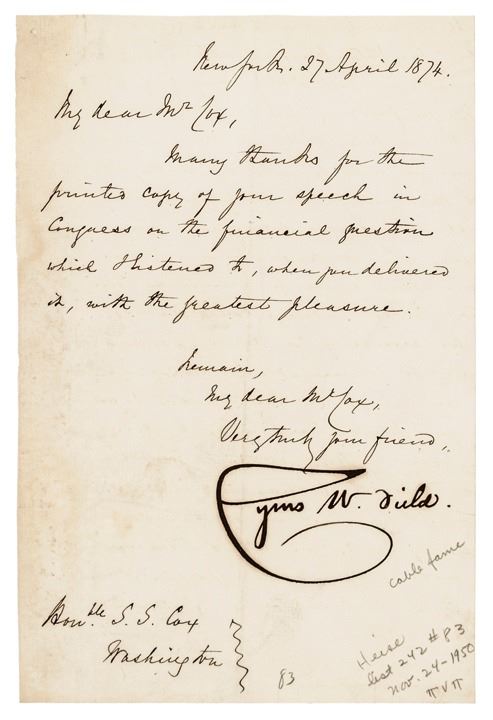 New York. 27 April 1874.
My dear Mr Cox,
Many thanks for the
printed copy of your speech in
Congress on the financial question
which I listened to, when you delivered
it, with the greatest pleasure.
I remain,
My dear Mr Cox,
Very truly your friend,
Cyrus W. Field.
cable fame
Hon.ble S. S. Cox
Washington
83
Heise
list 242 #83
Nov. 24-1950